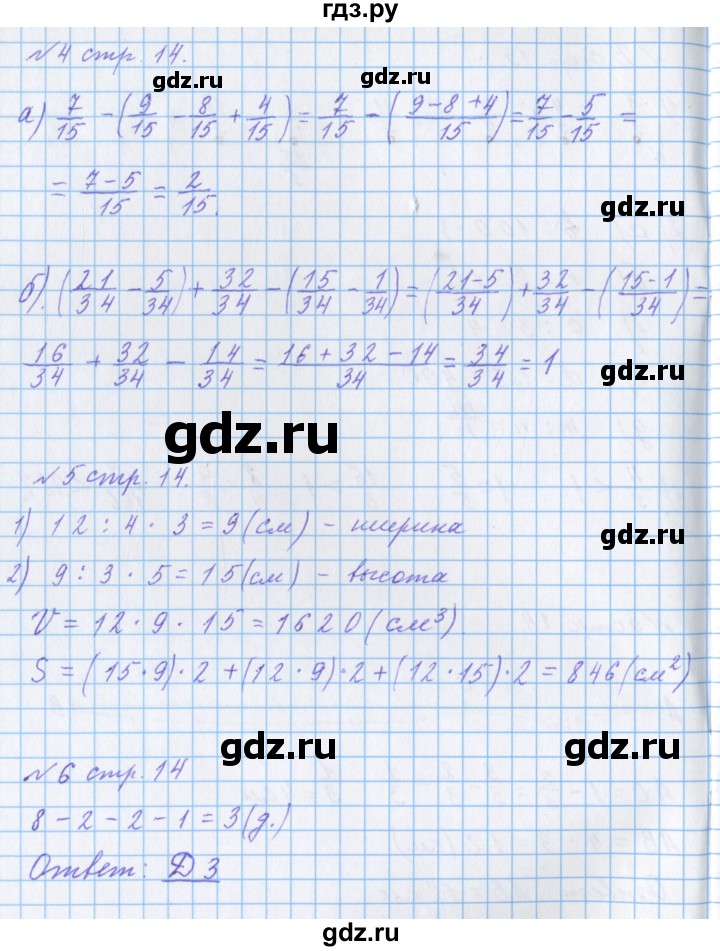 гдз.ру
№4 стр. 14.
gdz.ru
gdz.ru
а) 7/15 − (9/15 − 8/15 + 4/15) = 7/15 − ((9−8+4)/15) = 7/15 − 5/15 =
= (7−5)/15 = 2/15.
gdz.ru
б). (21/34 − 5/34) + 32/34 − (15/34 − 1/34) = ((21−5)/34) + 32/34 − ((15−1)/34) =
16/34 + 32/34 − 14/34 = (16+32−14)/34 = 34/34 = 1
gdz.ru
gdz.ru
№5 стр. 14.
1) 12 : 4 · 3 = 9 (см) − ширина
gdz.ru
2) 9 : 3 · 5 = 15 (см) − высота
V = 12 · 9 · 15 = 1620 (см³)
S = (15 · 9) · 2 + (12 · 9) · 2 + (12 · 15) · 2 = 846 (см²)
gdz.ru
gdz.ru
№6 стр. 14
8 − 2 − 2 − 1 = 3 (д.)
Ответ: Д 3
gdz.ru
gdz.ru
gdz.ru